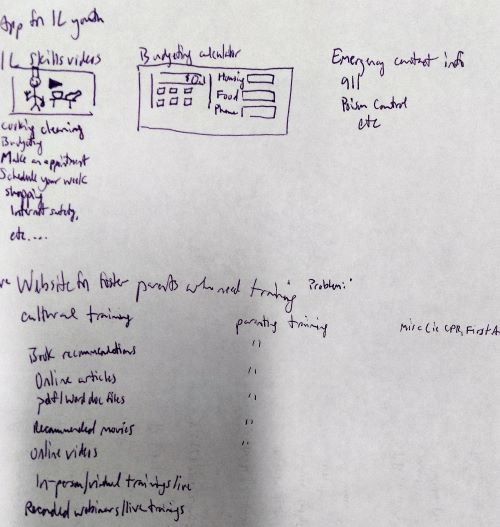 App for IL youth
IL skills videos
Cooking cleaning
Budgeting
Make an appointment
Schedule your week
shopping
Internet safety,
etc....
Budgeting calculator
$0
Housing
Food
Phone
Emergency contact info
911
Poison Control
etc
Website for foster parents who need training
Problem:
cultural training
Book recommendations
Online articles
pdf/Word doc files
Recommended movies
Online videos
In-person/virtual trainings/live
Recorded webinars/live trainings
parenting training
"
"
"
"
"
misc (ie CPR, First A